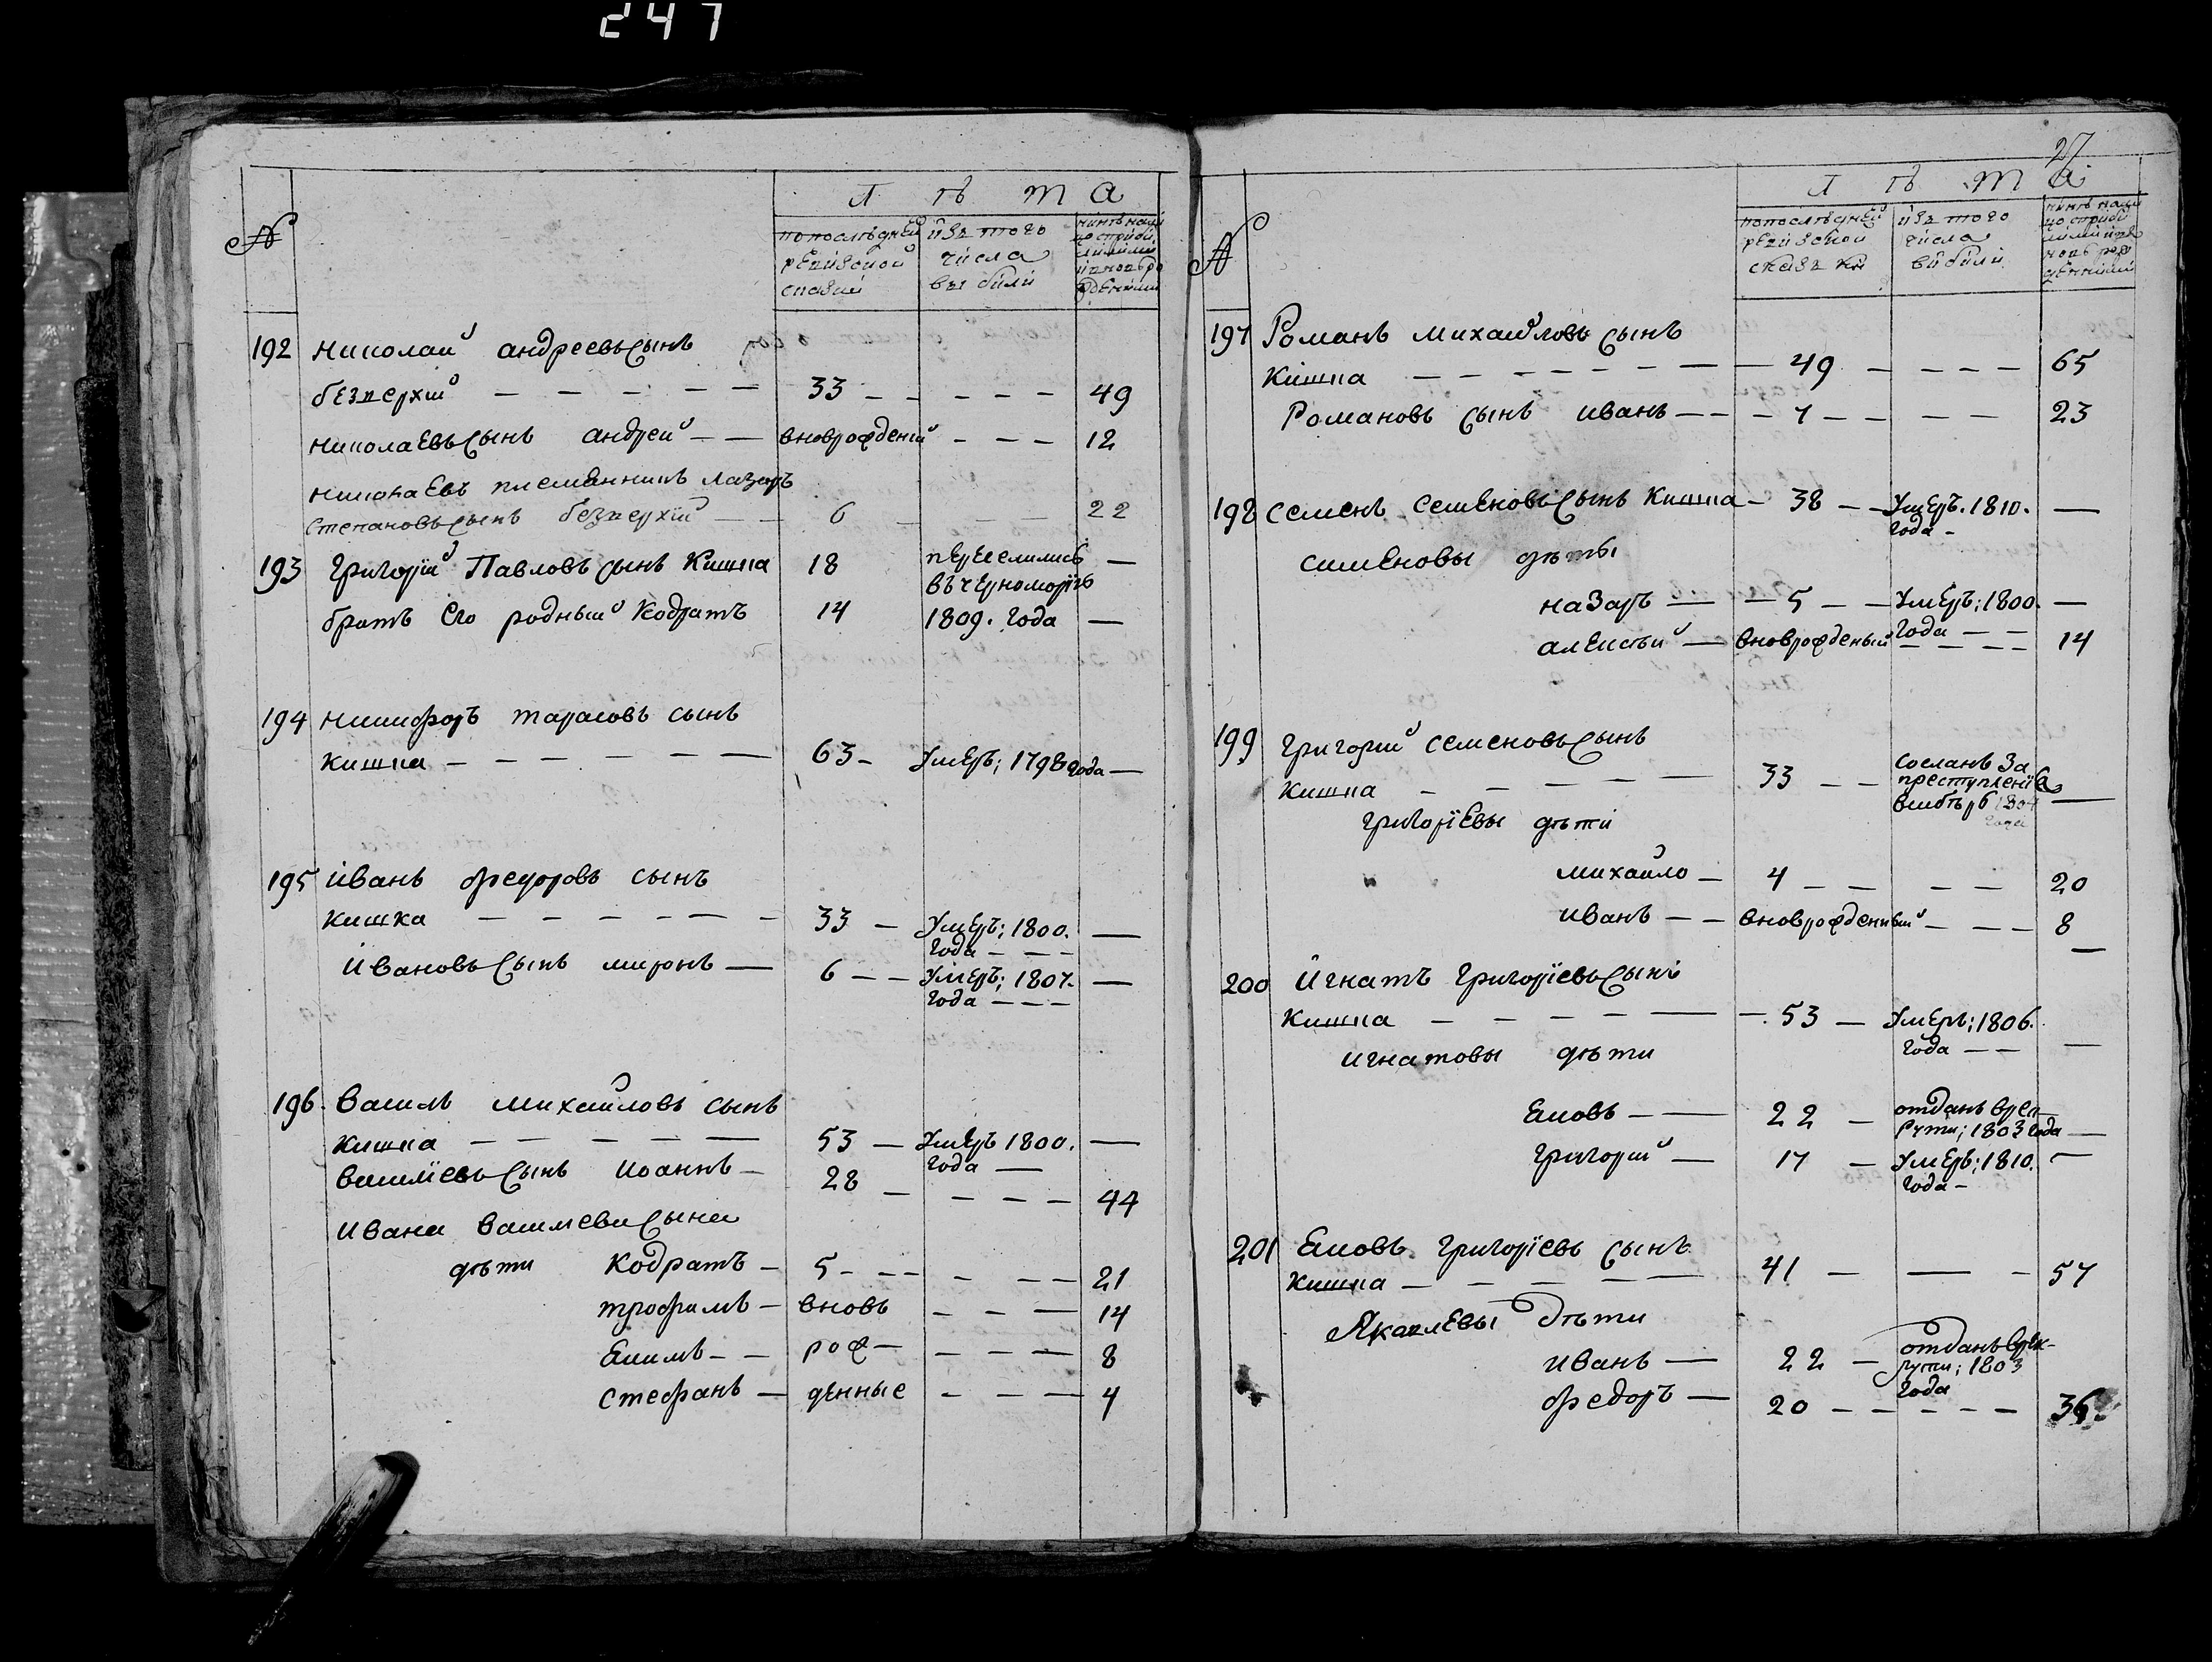 247
Л ѣ т а
№
по последней ревизской сказки
изъ того числа выбили
192 Николай андреевъ сынъ
безверхий — — — — — 33 — — — — — 49
николаевъ сынъ андрей — — вноврожденый — — — 12
николаевъ племянникъ лазаръ
степановъ сынъ безверхїй — — 6 — — 22
193 Григорїй Павловъ сынъ Кишка 18 переселились —
въ черноморїю
братъ Его родный Кодратъ 14 1809. года —
194 никифоръ тарасовъ сынъ
кишка — — — — — — 63 — Умеръ; 1798 года —
195 иванъ федоровъ сынъ
кишка — — — — — — 33 — Умеръ; 1800. —
года — — —
ивановъ сынъ миронъ — 6 — — Умеръ; 1807. —
года — — —
196. василь михайловъ сынъ
кишка — — — — — 53 — Умеръ 1800. —
года —
василїевъ сынъ иоаннъ — 28 — — — — 44
ивана василева сына
дѣти Кодратъ — 5 — — — — — — 21
трофимъ — вновь — — — 14
Екимъ — — рож — — — — 8
стефанъ — денные — — — 4
27
Л ѣ т а
№
по последней ревизской сказъ ки
изъ того числа выбили
197 Романъ михайловъ сынъ
кишка — — — — — — — — 49 — — — — 65
Романовъ сынъ иванъ — — — 7 — — — — 23
198 семенъ семеновъ сынъ Кишка — 38 — — Умеръ. 1810. —
года —
сименовы дѣты
назаръ — — 5 — — Умеръ; 1800. —
года — —
алексѣй — вноврожденый — — — — 14
199 григорий семеновъ сынъ
кишка — — — — — 33 — — сосланъ за
преступленїе
всибѣрь 1807 —
года
григорїевы дѣти
михайло — 4 — — — — 20
иванъ — — вноврожденный — — — 8
—
200 игнатъ григорїевъ сынъ
кишка — — — — — — 53 — Умеръ; 1806.
года — — —
игнатовы дѣти
Ековъ — — 22 — отданъ врек
рути; 1803 года —
григорий — 17 — Умеръ; 1810. —
года —
201 Ековъ григорїевъ сынъ
кишка — — — — — 41 — — — 57
Яковлевы дѣти
иванъ — 22 — отданъ врек-
рути; 1803
года
федоръ — 20 — — — — — 36